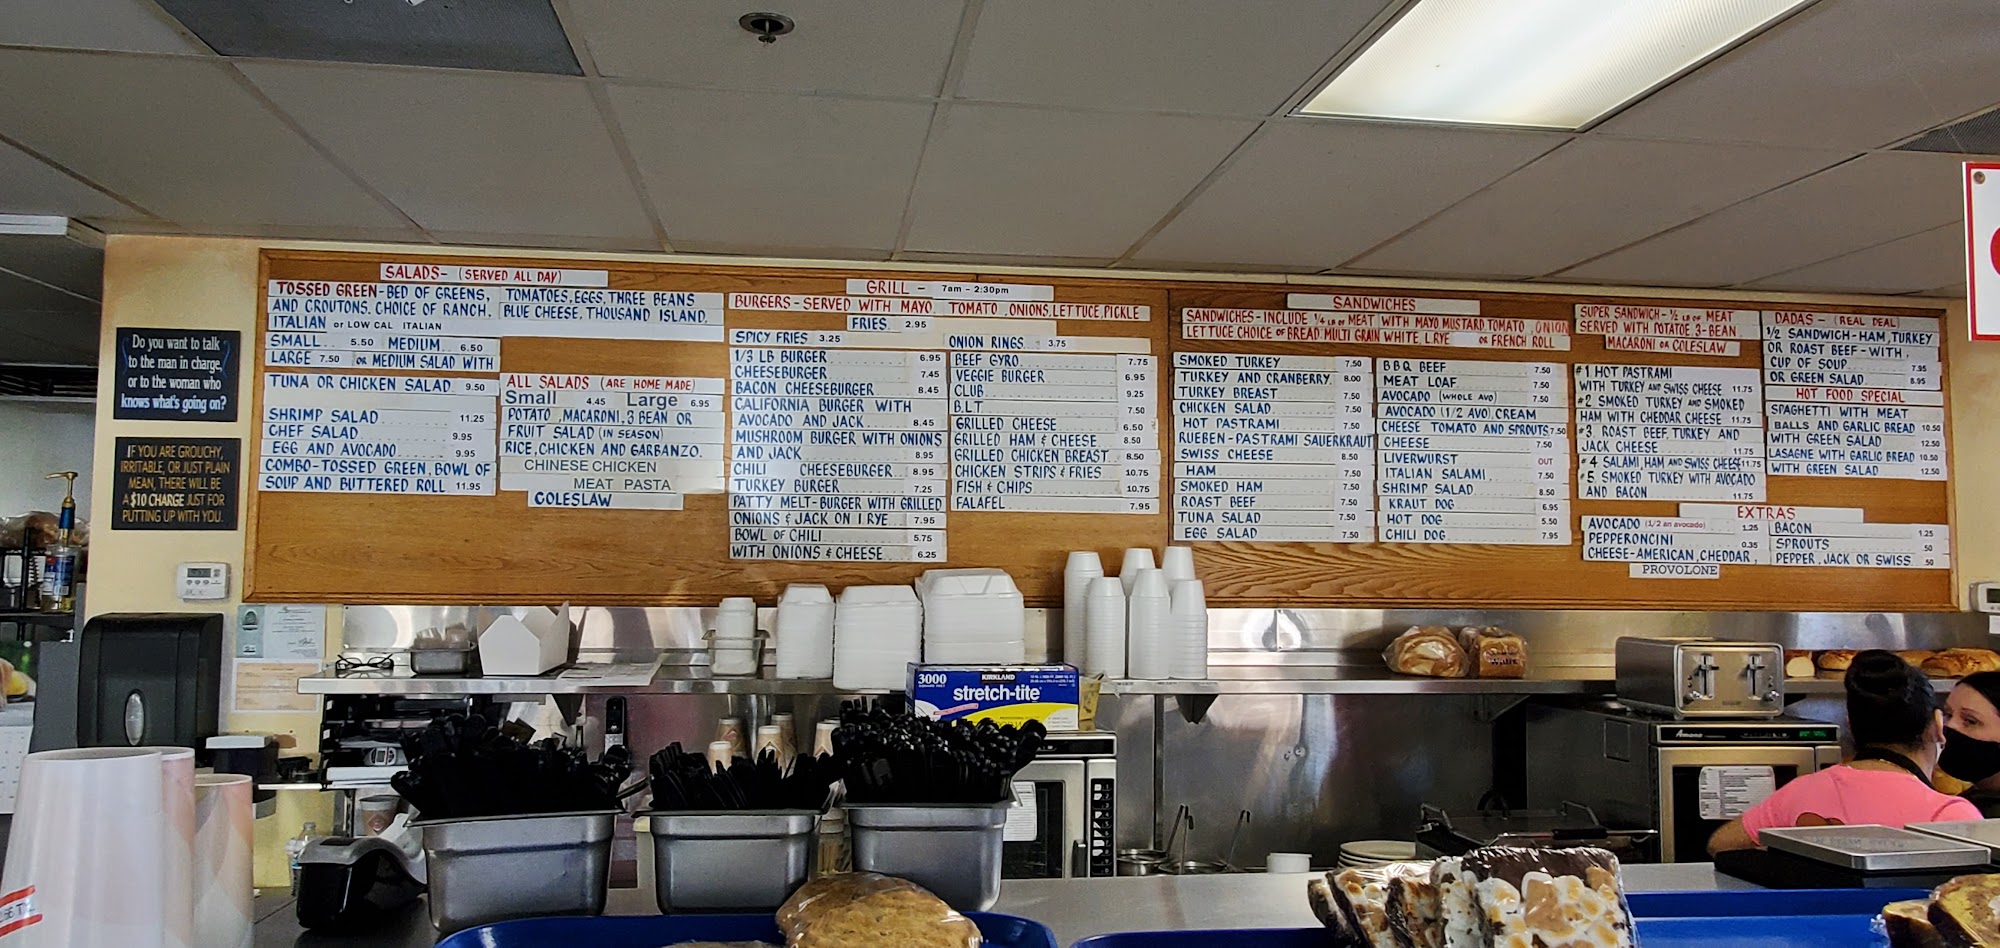 Do you want to talk
to the man in charge,
or to the woman who
knows what's going on?
IF YOU ARE GROUCHY,
IRRITABLE, OR JUST PLAIN
MEAN, THERE WILL BE
A $10 CHARGE JUST FOR
PUTTING UP WITH YOU.
SALADS- (SERVED ALL DAY)
TOSSED GREEN-BED OF GREENS, TOMATOES,EGGS,THREE BEANS
AND CROUTONS. CHOICE OF RANCH, BLUE CHEESE, THOUSAND ISLAND,
ITALIAN or LOW CAL ITALIAN
SMALL 5.50 MEDIUM 6.50
LARGE 7.50 or MEDIUM SALAD WITH
TUNA OR CHICKEN SALAD 9.50
SHRIMP SALAD 11.25
CHEF SALAD 9.95
EGG AND AVOCADO 9.95
COMBO-TOSSED GREEN, BOWL OF
SOUP AND BUTTERED ROLL 11.95
ALL SALADS (ARE HOME MADE)
Small 4.45 Large 6.95
POTATO, MACARONI, 3 BEAN OR
FRUIT SALAD (IN SEASON)
RICE, CHICKEN AND GARBANZO.
CHINESE CHICKEN
MEAT PASTA
COLESLAW
GRILL - 7am - 2:30pm
BURGERS-SERVED WITH MAYO, TOMATO, ONIONS, LETTUCE, PICKLE
FRIES 2.95
SPICY FRIES 3.25
1/3 LB BURGER 6.95
CHEESEBURGER 7.45
BACON CHEESEBURGER 8.45
CALIFORNIA BURGER WITH
AVOCADO AND JACK 8.45
MUSHROOM BURGER WITH ONIONS
AND JACK 8.95
CHILI CHEESEBURGER 8.95
TURKEY BURGER 7.25
PATTY MELT-BURGER WITH GRILLED
ONIONS & JACK ON RYE 7.95
BOWL OF CHILI 5.75
WITH ONIONS & CHEESE 6.25
ONION RINGS 3.75
BEEF GYRO 7.75
VEGGIE BURGER 6.95
CLUB 9.25
B.L.T 7.50
GRILLED CHEESE 6.50
GRILLED HAM & CHEESE 8.50
GRILLED CHICKEN BREAST 8.50
CHICKEN STRIPS & FRIES 10.75
FISH & CHIPS 10.75
FALAFEL 7.95
SANDWICHES
SANDWICHES-INCLUDE 1/4 LB OF MEAT WITH MAYO MUSTARD TOMATO, ONION
LETTUCE CHOICE OF BREAD MULTI GRAIN WHITE, RYE OR FRENCH ROLL
SMOKED TURKEY 7.50
TURKEY AND CRANBERRY 8.00
TURKEY BREAST 7.50
CHICKEN SALAD 7.50
HOT PASTRAMI 7.50
RUEBEN-PASTRAMI SAUERKRAUT
SWISS CHEESE 8.50
HAM 7.50
SMOKED HAM 7.50
ROAST BEEF 7.50
TUNA SALAD 7.50
EGG SALAD 7.50
BBQ BEEF 7.50
MEAT LOAF 7.50
AVOCADO (WHOLE AVO) 7.50
AVOCADO (1/2 AVO) CREAM
CHEESE TOMATO AND SPROUTS 7.50
CHEESE 7.50
LIVERWURST OUT
ITALIAN SALAMI 7.50
SHRIMP SALAD 8.50
KRAUT DOG 6.95
HOT DOG 5.50
CHILI DOG 7.95
SUPER SANDWICH-1/2 LB OF MEAT
SERVED WITH POTATOE 3-BEAN
MACARONI OR COLESLAW
#1 HOT PASTRAMI
WITH TURKEY AND SWISS CHEESE 11.75
#2 SMOKED TURKEY AND SMOKED
HAM WITH CHEDDAR CHEESE 11.75
#3. ROAST BEEF, TURKEY AND
JACK CHEESE 11.75
#4 SALAMI, HAM AND SWISS CHEESE 11.75
#5 SMOKED TURKEY WITH AVOCADO
AND BACON 11.75
DADAS - (REAL DEAL)
1/2 SANDWICH-HAM, TURKEY
OR ROAST BEEF-WITH,
CUP OF SOUP 7.95
OR GREEN SALAD 8.95
HOT FOOD SPECIAL
SPAGHETTI WITH MEAT
BALLS AND GARLIC BREAD 10.50
WITH GREEN SALAD 12.50
LASAGNE WITH GARLIC BREAD 10.50
WITH GREEN SALAD 12.50
EXTRAS
AVOCADO (1/2 an avocado) 1.25
PEPPERONCINI 0.35
CHEESE-AMERICAN, CHEDDAR,
PROVOLONE
BACON 1.25
SPROUTS .50
PEPPER, JACK OR SWISS .50
3000
KIRKLAND
stretch-tite
Amana